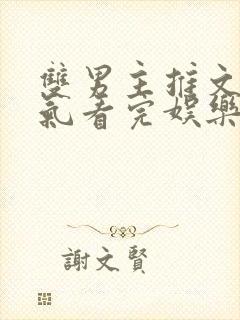 雙男主推文
氣看完娛樂
謝文賢